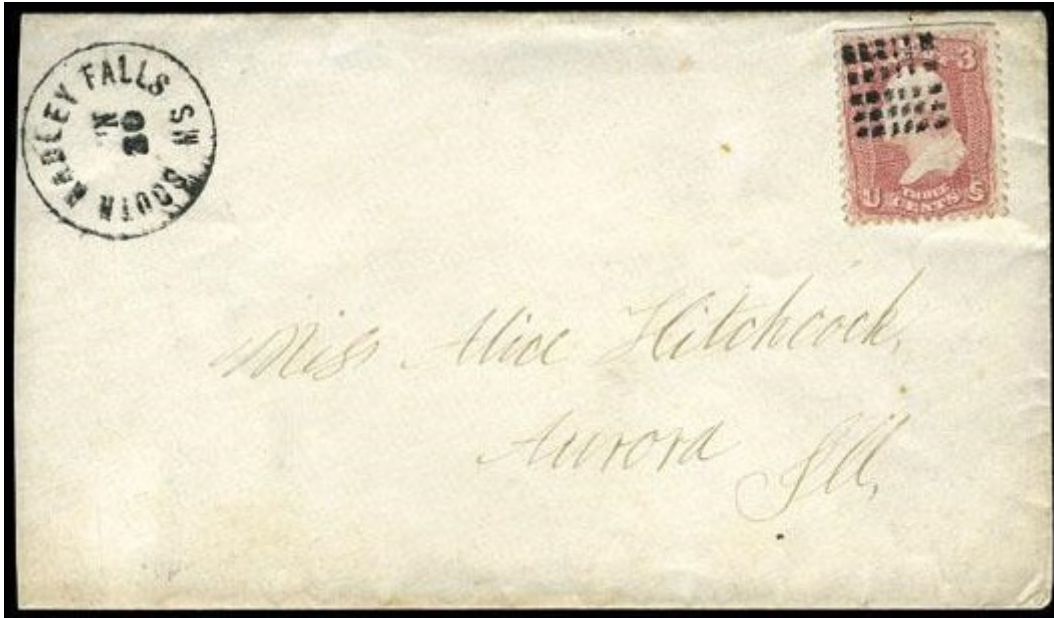 SOUTH HADLEY FALLS
3
U S
THREE
CENTS
Miss Alice Hitchcock,
Aurora Ill,